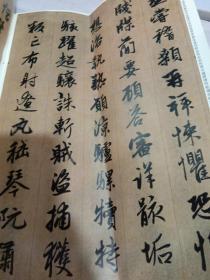 嘗稽顙再拜悚懼恐惶
牋牒簡要顧答審詳骸垢
想浴執熱願涼驢騾犢特
駭躍超驤誅斬賊盜捕獲
叛亡布射遼丸嵇琴阮嘯